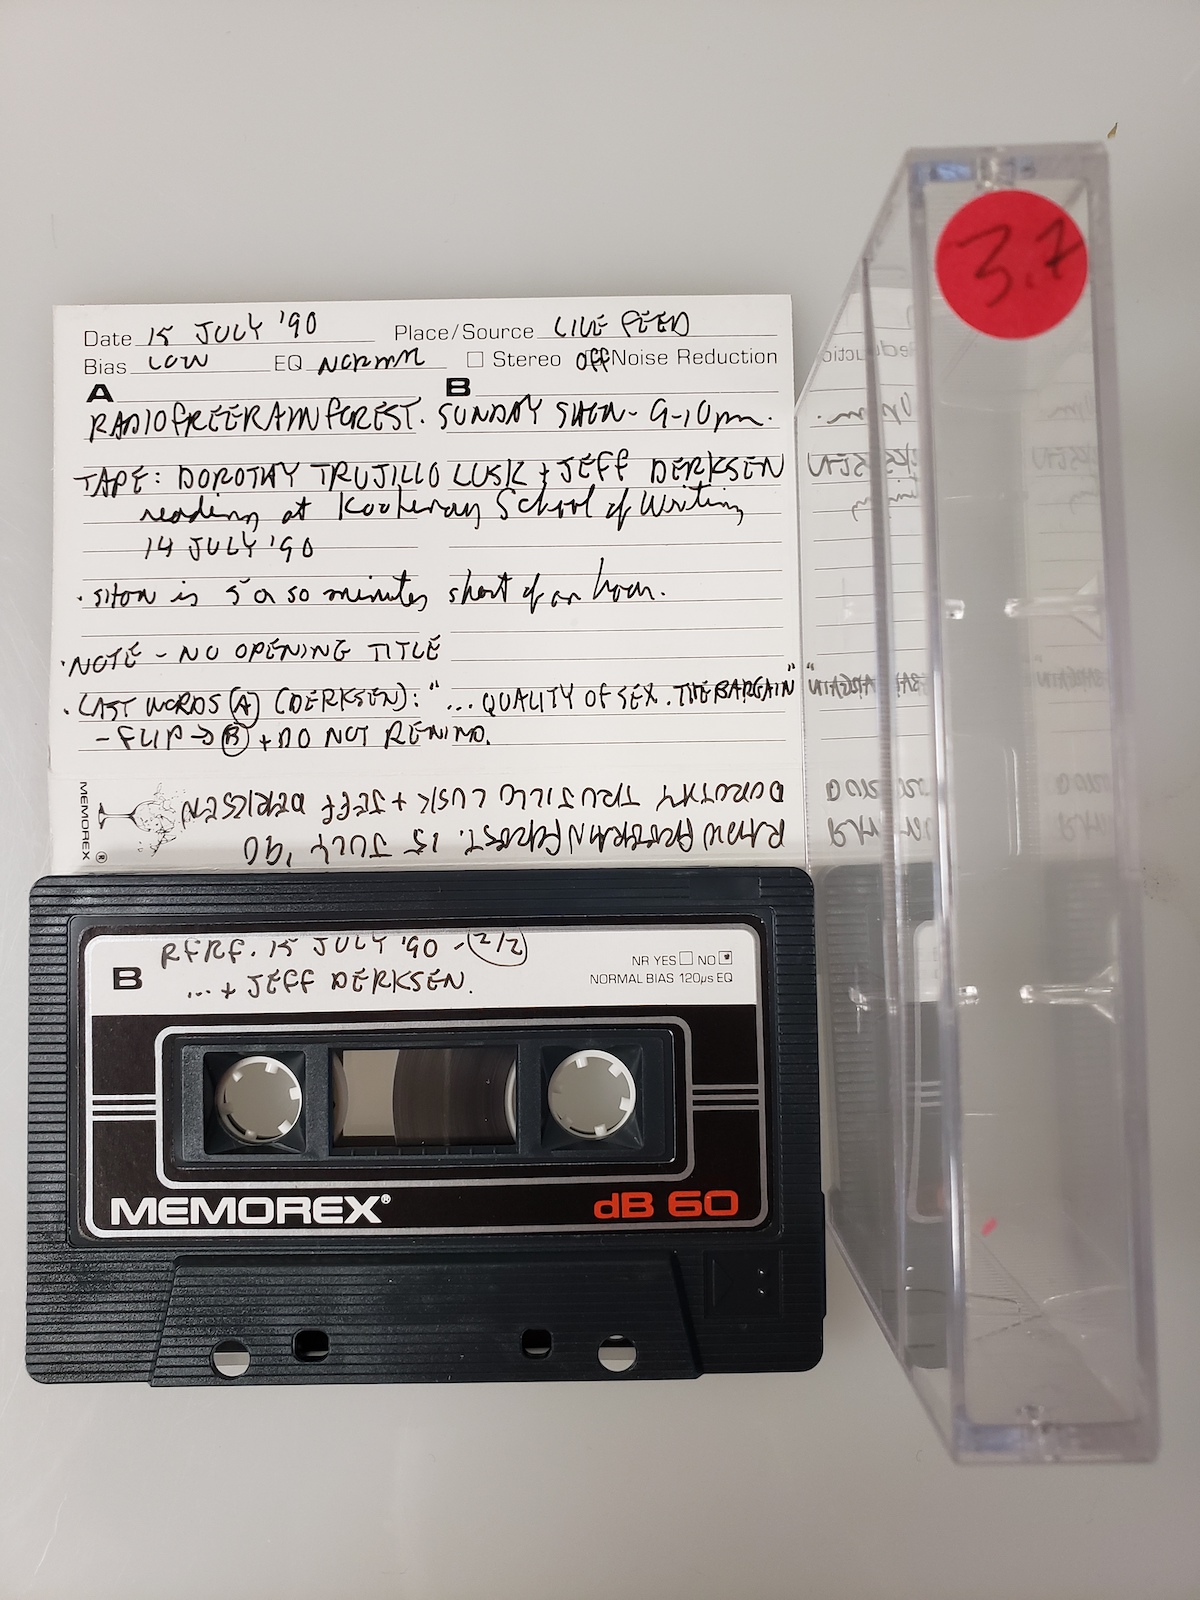 3.7
Date 15 JULY '90 Place/Source LIVE FEED
Bias LOW EQ NORMAL Stereo Off Noise Reduction
A B
RADIOFREERAINFOREST. SUNDAY SHOW - 9-10pm.
TAPE: DOROTHY TRUJILLO LUSK + JEFF DERKSEN
reading at Kootenay School of Writing
14 JULY '90
· SHOW is 5 or so minutes short of an hour.
· NOTE - NO OPENING TITLE
· LAST WORDS (A) (DERKSEN): "... QUALITY OF SEX. THE BARGAIN"
- FLIP → (B) + DO NOT REWIND.
MEMOREX ®
RADIO FREERAINFOREST. 15 JULY '90
DOROTHY TRUJILLO LUSK + JEFF DERKSEN
B RFRF. 15 JULY '90 - (2/2)
... + JEFF DERKSEN.
NR YES NO
NORMAL BIAS 120µs EQ
MEMOREX® dB 60